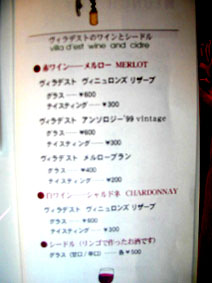 ヴィラデストのワインとシードル
villa d'est wine and cidre
●赤ワイン──メルロー MERLOT
ヴィラデスト ヴィニュロンズ リザーブ
グラス──¥600
テイスティング──¥300
ヴィラデスト アンソロジー'99 vintage
グラス──¥600
テイスティング──¥300
ヴィラデスト メルローブラン
グラス──¥400
テイスティング──¥200
●白ワイン──シャルドネ CHARDONNAY
ヴィラデスト ヴィニュロンズ リザーブ
グラス──¥600
テイスティング──¥300
●シードル(リンゴで作ったお酒です)
グラス(甘口/辛口)──各¥500